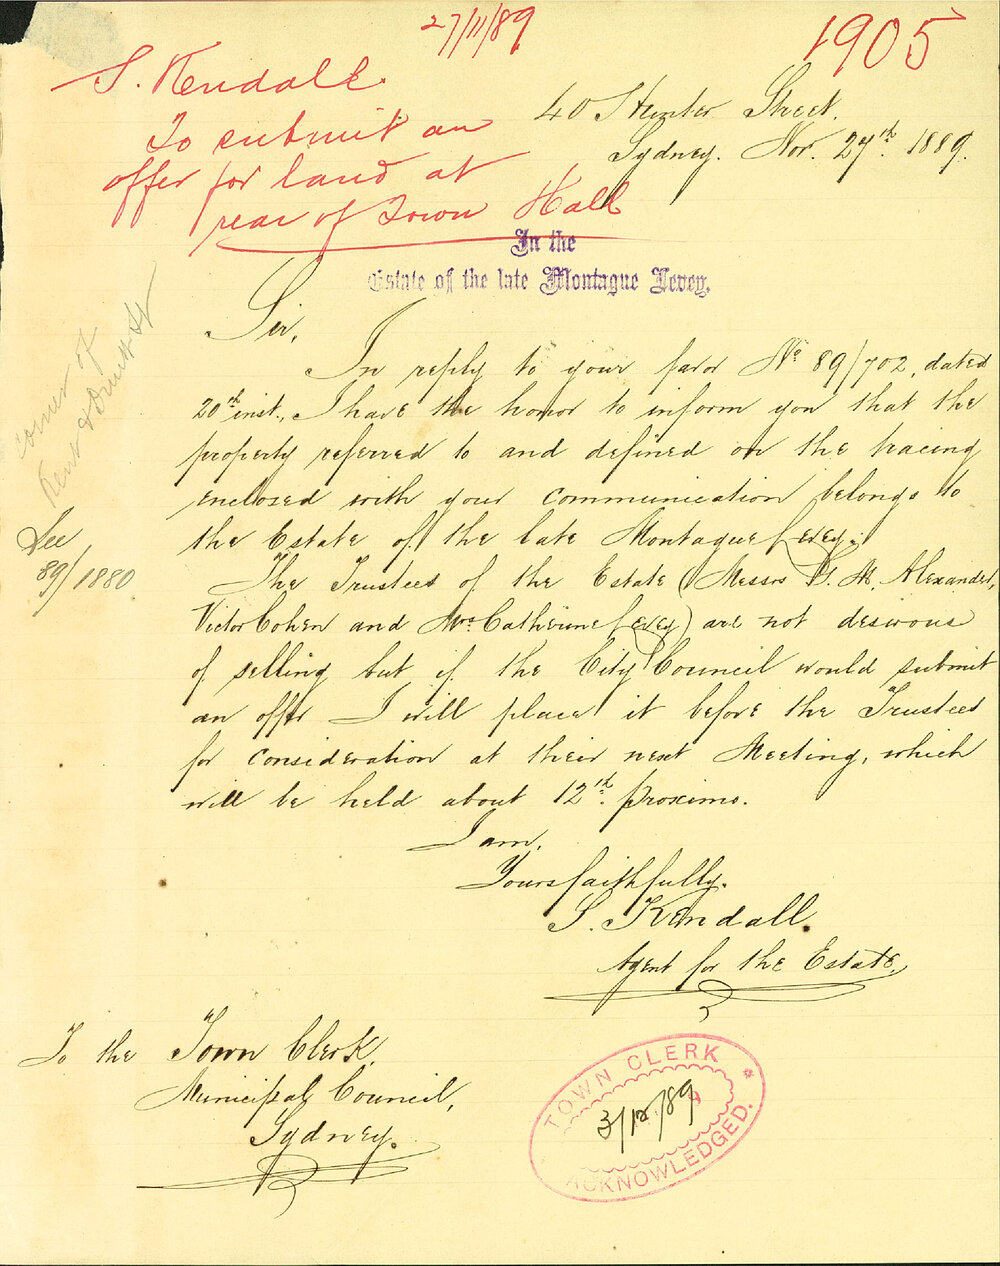 27/11/89
1905
S. Kendall
To submit an
offer for land at
rear of Town Hall
40 Hunter Street.
Sydney. Nov. 27th. 1889.
In the
Estate of the late Montague Levey.
Sir,
In reply to your favor No 89/702, dated
20th inst., I have the honor to inform you that the
property referred to and defined on the tracing
enclosed with your communication belongs to
the Estate of the late Montague Levey.
The Trustees of the Estate (Messrs M. Alexander,
Victor Cohen and Mrs Catherine Levey) are not desirous
of selling but if the City Council would submit
an offer I will place it before the Trustees
for consideration at their next Meeting, which
will be held about 12th. proximo.
I am,
Yours faithfully.
S. Kendall.
Agent for the Estate.
To the Town Clerk.
Municipal Council,
Sydney.
corner of
Kent & Druitt St
See
89/1880
TOWN CLERK
3/12/89
ACKNOWLEDGED.